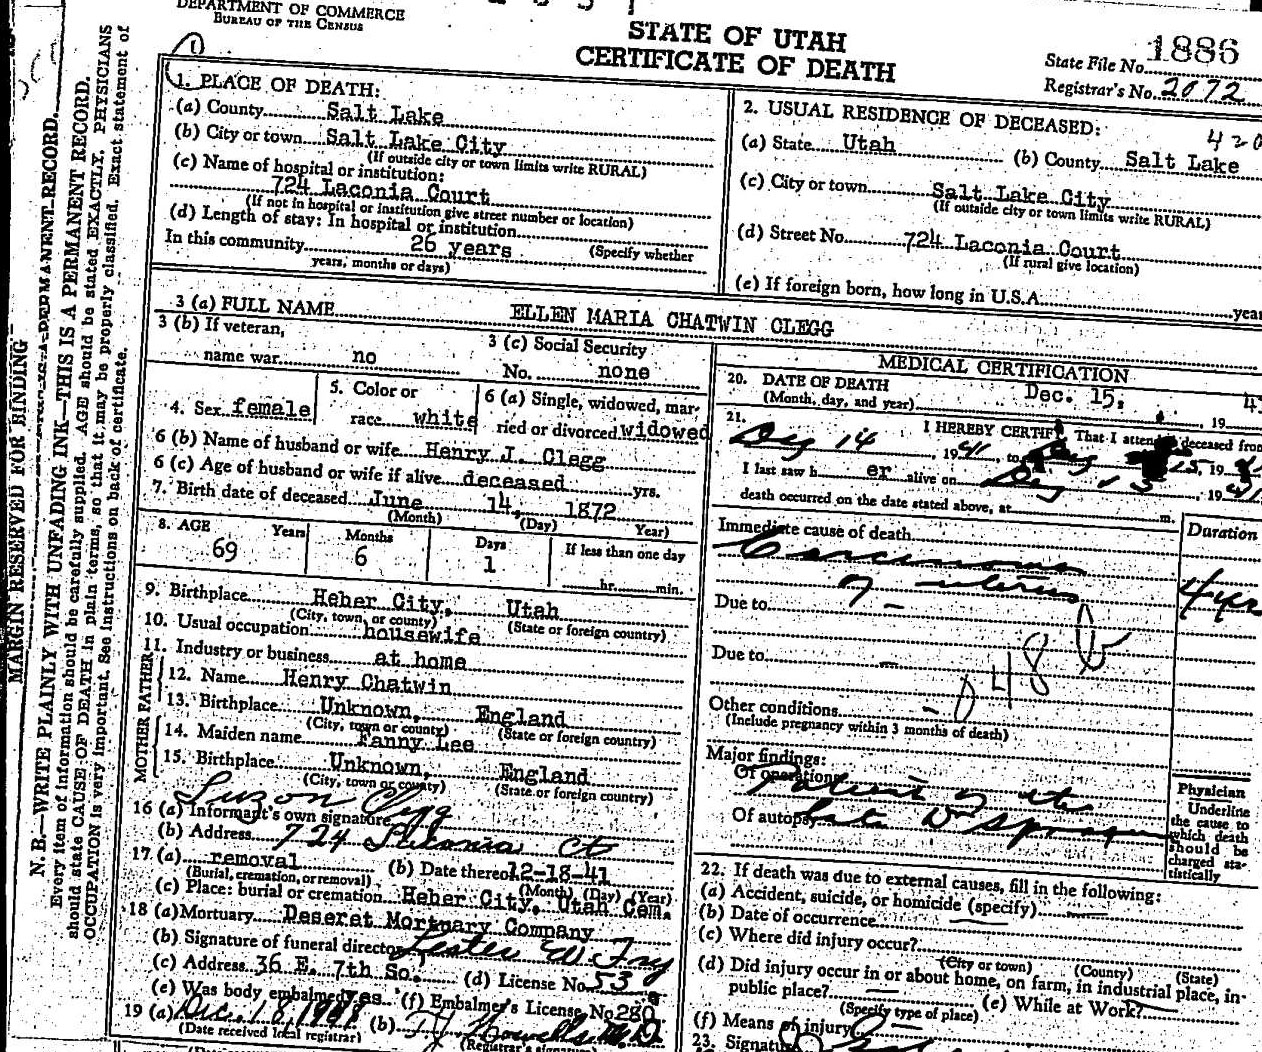 DEPARTMENT OF COMMERCE
BUREAU OF THE CENSUS
STATE OF UTAH
CERTIFICATE OF DEATH
State File No. 1886
Registrar's No. 2072
MARGIN RESERVED FOR BINDING
N. B.—WRITE PLAINLY WITH UNFADING INK—THIS IS A PERMANENT RECORD.
Every item of information should be carefully supplied. AGE should be stated EXACTLY. PHYSICIANS
should state CAUSE OF DEATH in plain terms, so that it may be properly classified. Exact statement of
OCCUPATION is very important. See instructions on back of certificate.
1. PLACE OF DEATH:
(a) County Salt Lake
(b) City or town Salt Lake City
(If outside city or town limits write RURAL)
(c) Name of hospital or institution:
724 Laconia Court
(If not in hospital or institution give street number or location)
(d) Length of stay: In hospital or institution
In this community 26 years (Specify whether
years, months or days)
2. USUAL RESIDENCE OF DECEASED:
420
(a) State Utah (b) County Salt Lake
(c) City or town Salt Lake City
(If outside city or town limits write RURAL)
(d) Street No. 724 Laconia Court
(If rural give location)
(e) If foreign born, how long in U.S.A. year
3 (a) FULL NAME ELLEN MARIA CHATWIN CLEGG
3 (b) If veteran,
name war no
3 (c) Social Security
No. none
4. Sex female
5. Color or
race white
6 (a) Single, widowed, mar-
ried or divorced widowed
6 (b) Name of husband or wife Henry J. Clegg
6 (c) Age of husband or wife if alive deceased yrs.
7. Birth date of deceased June 14, 1872
(Month) (Day) Year)
8. AGE Years Months Days If less than one day
69 6 1 hr. min.
9. Birthplace Heber City, Utah
(City, town, or county) (State or foreign country)
10. Usual occupation housewife
11. Industry or business at home
FATHER
12. Name Henry Chatwin
13. Birthplace Unknown, England
(City, town or county) (State or foreign country)
MOTHER
14. Maiden name Fanny Lee
15. Birthplace Unknown, England
(City, town or county) (State or foreign country)
16 (a) Informant's own signature Luzon Clegg
(b) Address 724 Ct
17. (a) removal (b) Date thereof 12-18-41
(Burial, cremation, or removal) (Month) (Day) (Year)
(c) Place: burial or cremation Heber City, Utah Cem.
18 (a) Mortuary Deseret Mortuary Company
(b) Signature of funeral director Lester W Fry
(c) Address 36 E. 7th So. (d) License No. 53
(e) Was body embalmed yes (f) Embalmer's License No. 280
19 (a) Dec. 18, (b) M.D.
(Date received local registrar) (Registrar's signature)
MEDICAL CERTIFICATION
20. DATE OF DEATH Dec. 15, , 19 4
(Month, day, and year)
21. I HEREBY CERTIFY That I attended deceased from
14 , 1941, to 15, 19
I last saw h er alive on , 1941
death occurred on the date stated above, at m.
Immediate cause of death Duration
Carcinoma
of uterus 4 yrs
Due to
Due to
048 b
Other conditions
(Include pregnancy within 3 months of death)
Major findings:
Of operations
Patient of the
Of autopsy late Dr Sprague
Physician
Underline
the cause to
which death
should be
charged sta-
tistically
22. If death was due to external causes, fill in the following:
(a) Accident, suicide, or homicide (specify)
(b) Date of occurrence
(c) Where did injury occur?
(City or town) (County) (State)
(d) Did injury occur in or about home, on farm, in industrial place, in-
public place? (e) While at Work?
(Specify type of place)
(f) Means of injury
23. Signature